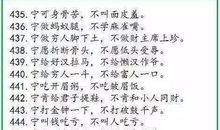 435. 宁可身骨苦，不叫面皮羞。
436. 宁做蚂蚁腿，不学麻雀嘴。
437. 宁做穷人脚下土，不做财主席上珍。
438. 宁愿折断骨头，不愿低头受辱。
439. 宁给好汉拉马，不给懒汉作爷。
440. 宁给穷人一斗，不给富人一口。
441. 宁吃开眉粥，不吃皱眉饭。
442. 宁肯给君子提鞋，不肯和小人同财。
443. 宁打金钟一下，不打破鼓千声。
444. 宁叫钱吃亏，不叫人吃亏。